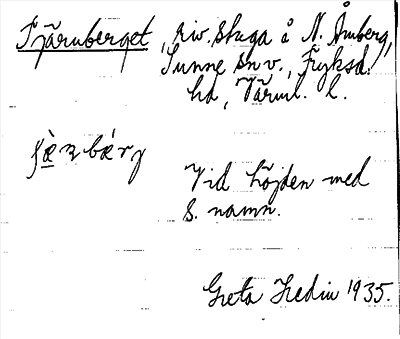 Fjäruberget, riv. stuga å N. Åmberg,
Sunne sn v., Fryksd.
hd, Värml. l.
fæ̀ʒ bǽrj
Vid höjden med
s. namn.
Greta Hedin 1935.